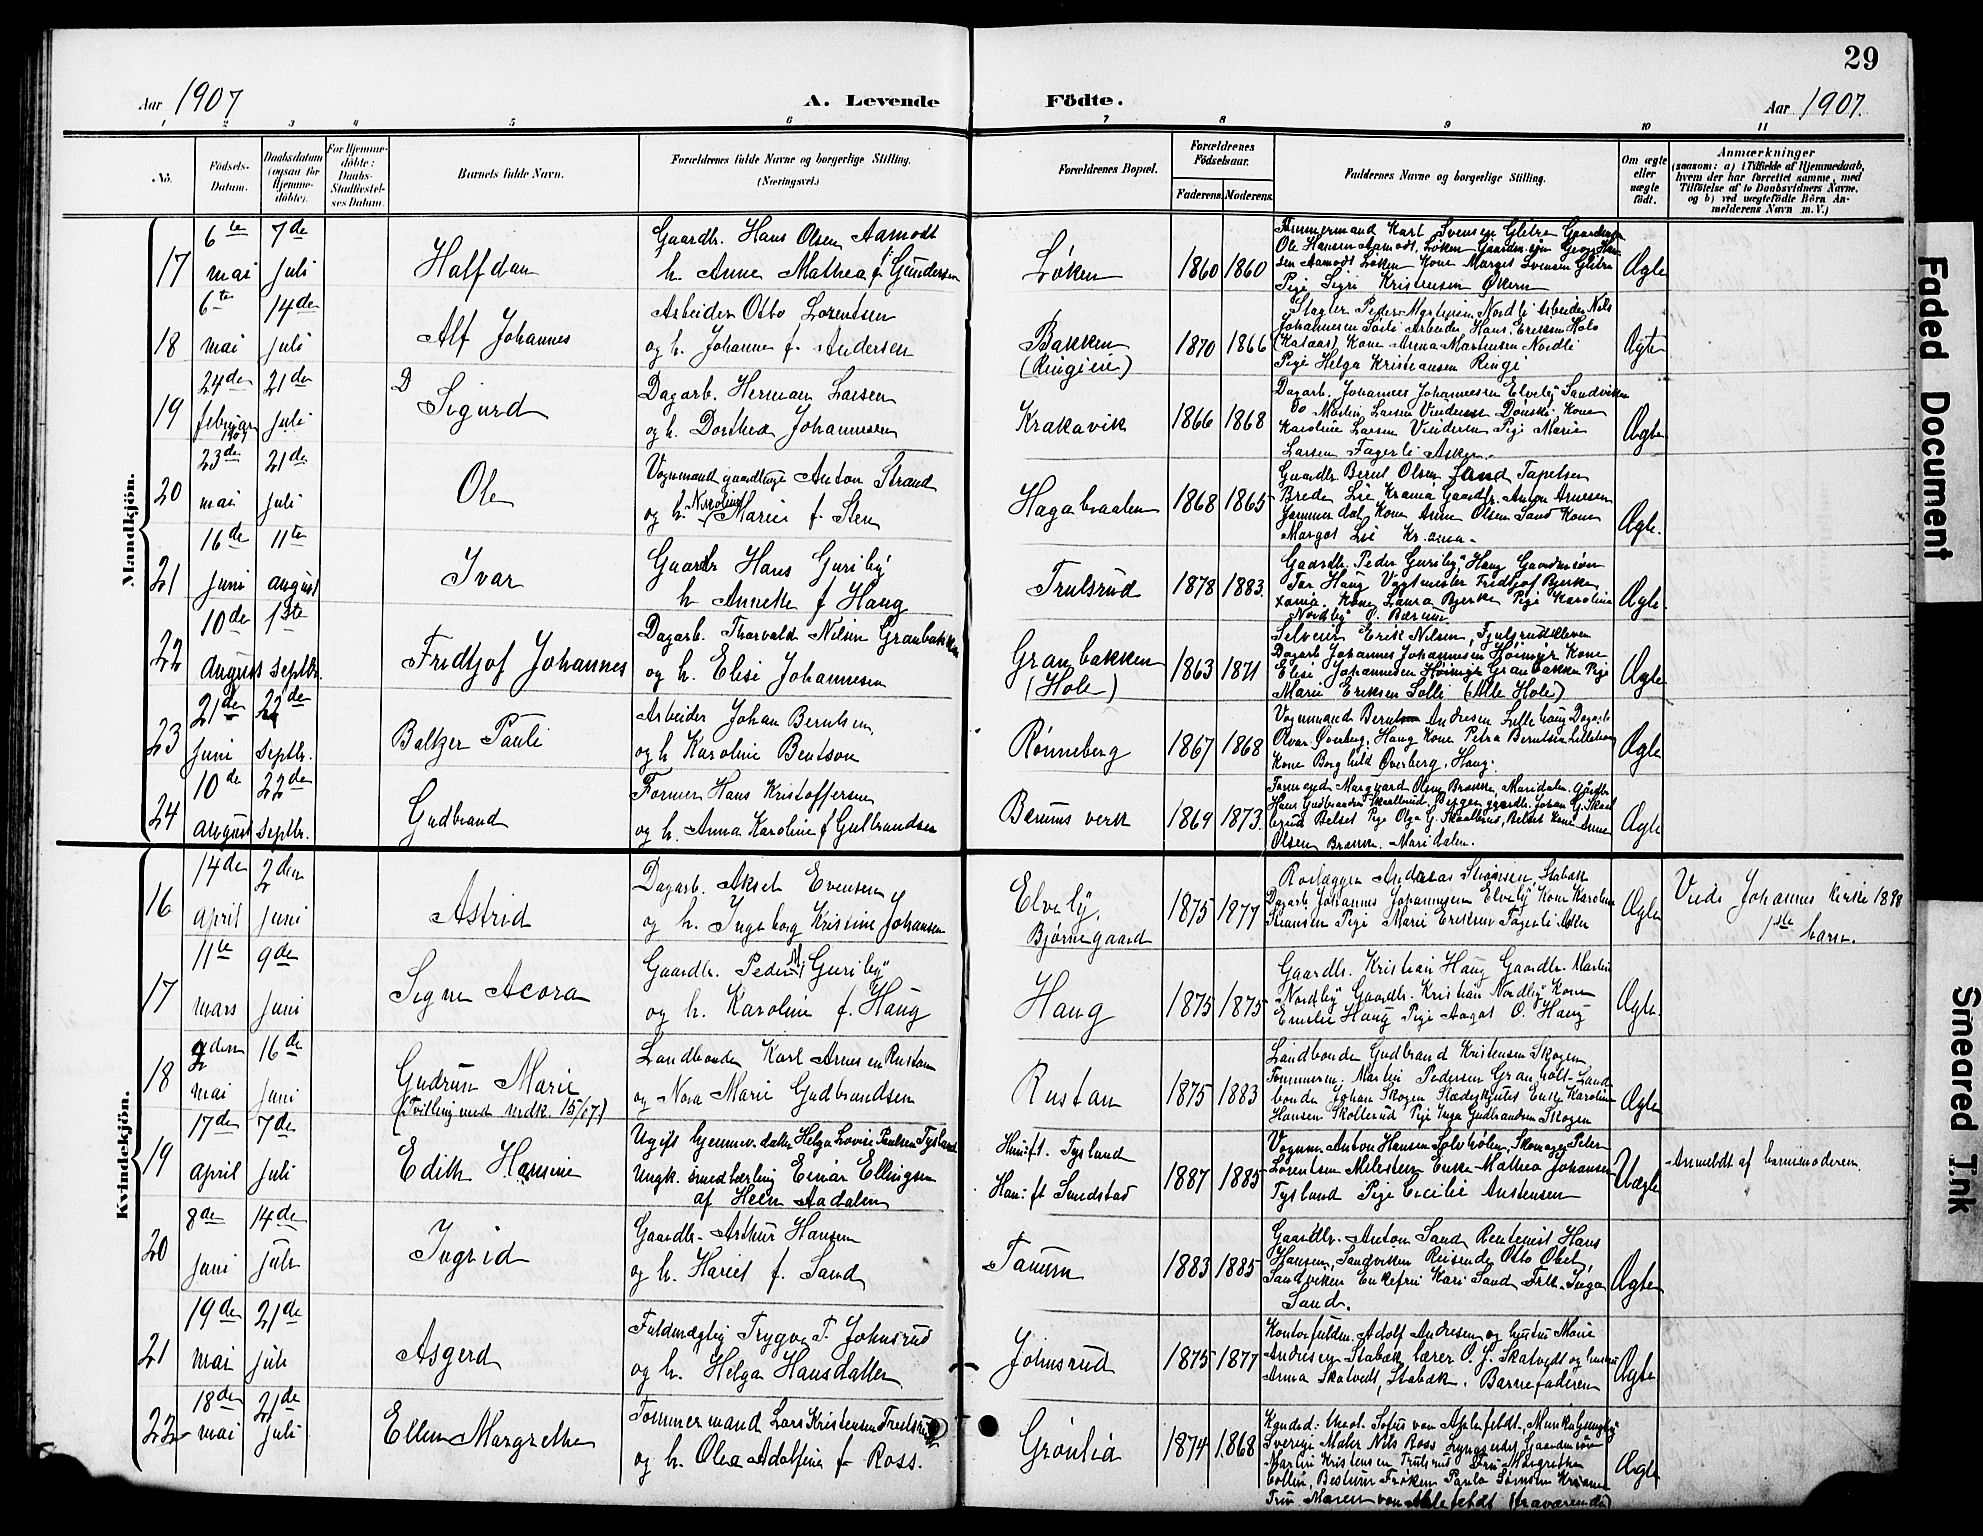 29
Aar 1907 A. Levende Födte. Aar 1907.
1 2 3 4 5 6 7 8 9 10 11
No. Födsels-Datum. Daabsdatum (ogsaa for Hjemme-döbte). For Hjemme-döbte: Daabs-Stadfæstel-ses Datum. Barnets fulde Navn. Forældrenes fulde Navne og borgerlige Stilling. (Næringsvei.) Forældrenes Bopæl. Forældrenes Födselsaar. Faderens. Moderens. Faddernes Navne og borgerlige Stilling. Om ægte eller uægte födt. Anmærkninger (saasom: a) i Tilfælde af Hjemmedaab, hvem der har forrettet samme, med Tilföielse af to Daabsvidners Navne, og b) ved uægtefödte Börn An-melderens Navn m. V.)
Mandkjön.
17 6te mai 7de juli Halfdan
Gaardbr. Hans Olsen Aamodt
h. Anne Mathea f. Gundersen
Løken 1860 1860
Tømmermand Karl Svensen Glitre
Ole Hansen Aamodt, Løken Gaardm.søn Georg Han
sen Aamodt Løken Kone Margit Svensen Glitre
Pige Sigri Kristensen Økern
Ægte
18 6te mai 14de juli Alf Johannes
Arbeider Otto Lorentsen
og h. Johanne f. Andersen
Bakken (Ringieie) 1870 1866
Slagter Peder Martinsen Nordli Arbeider Nils
Johannesen Solli Arbeider Hans Eriksen Holo
Kone Anna Martinsen Nordli
Pige Helga Kristiansen Ringi
Ægte
19 24de februar 1907 21de juli D Sigurd
Dagarb. Herman Larsen
og h. Dorthea Johannesen
Krakavik 1866 1868
Dagarb. Johannes Johannesen Elvely Sandviken
Do Martin Larsen Vinderen Dønski Kone
Karoline Larsen Vinderen Pige Marie
Larsen Fagerli Asker.
Ægte
20 23de mai 21de juli Ole
Vognmand gaardbruger Anton Strand
og h. Nicoline Marie f. Sten
Hagabraaten 1868 1865
Gaardbr. Bernt Olsen Sand Tapetser
Brede Lie Krania Gaardbr. Anton Arnesen
Jammerdal, Kone Anna Olsen Sand Kone
Margot Lie Kr.ania.
Ægte.
21 16de juni 11te august Ivar
Gaardbr Hans Guriby
h Annette f Haug
Trulsrud 1878 1883.
Gaardbr. Peder Guriby, Haug Gaardmsøn
Tor Haug Vagtmester Fridtjof Bjerke
Kania. Kone Laura Bjerke Pige Karoline
Nordby Ø. Bærum
Ægte
22 10de august 1ste septbr. Fridtjof Johannes
Dagarb. Thorvald Nilsen Granbakken
og h. Elise Johannesen
Granbakken (Hole) 1863 1871
Selveier Erik Nilsen, Fjulsrudkleven
Dagarb Johannes Johannesen Høimyr Kone
Elise Johannesen Høimyr Granbakken Pige
Marie Eriksen Solli (Alle Hole)
Ægte
23 21de juni 22de septbr. Baltzer Pauli
Arbeider Johan Berntsen
og h. Karoline Bentson
Rønneberg 1867 1868
Vognmand Bernt Andresen Lillehaug Dagarb
Olvar Øverberg, Haug Kone Petra Berntsen Lillehaug
Kone Borghild Øverberg, Haug.
Ægte
24 10de august 22de septbr. Gudbrand
Former Hans Kristoffersen
og h. Anna Karoline f Gulbrandsen
Berums verk 1869 1873.
Hans Gudbrandsen Skallerud, Berger gaardbr. Johan G. Skal
lerud Belset Pige Olga G. Skallerud, Belset Kone Anne
Olsen Maridalen.
Ægte
Kvindekjön.
16 14de april 2den juni Astrid
Dagarb. Aksel Evensen
og h. Ingeborg Kristine Johansen
Elvely, Bjørnegaard 1875 1877
Rørlægger Andreas Stiansen, Stabæk
Dagarb Johannes Johannesen Elvely Kone Karoline
Stiansen Pige Marie Eriksen Fagerli Asker
Ægte
Viede Johannes kirke 1898
1ste barn.
17 11te mars 9de juni Signe Acora
Gaardbr. Peder M Guriby
og h. Karoline f. Haug
Haug 1875 1875
Gaardbr. Kristian Haug Gaardbr. Martin
Nordby Gaardbr. Kristian Nordby Kone
Emilie Haug Pige Aagot O. Haug
Ægte.
18 2den mai 16de juni Gudrun Marie
(Tvilling med mdk. 15/17)
Landbonde Karl Arnesen Rustan
og Nora Marie Gudbrandsen
Rustan 1875 1883
Landbonde Gudbrand Kristensen Skogen
Tømmerm. Martin Pedersen Granholt Land
bonde Johan Skogen Stædeskjutes Enke Karoline
Hansen Skollerud Pige Inga Gudbrandsen Skogen
Ægte
19 17de april 7de juli Edith Hannine
Ugift hjemmev. datter Helga Lovise Paulsen Tysland
Ungk. smedlærling Einar Ellingsen
af Heen Aadalen
Husift. Tysland
Hansft Sundstad 1887 1885
Vognm. Anton Hansen Solvhølen, Skomager Peter
Lorentsen Milesten Enke Mathea Johansen
Tysland Pige Cecilie Austensen
Uægte
Anmeldt af barnemoderen.
20 8de juni 14de juli Ingrid
Gaardbr. Arthur Hansen
og h. Hariet f. Sand
Tanum 1883 1885
Gaardbr. Anton Sand Rentenist Hans
Hansen, Sandviken Reisende Otto Obel,
Sandviken Enkefru Kari Sand Frk. Inga
Sand.
Ægte
21 19de mai 21de juli Asgerd
Fuldmægtig Trygve T. Johnsrud
og h. Helga Hansdatter
Johnsrud 1875 1877
Kontorfuldm. Adolf Andresen og hustru Marie
Andresen Stabæk lærer O. J. Skatvedt og hustru
Anna Skatvedt, Stabæk. Barnefaderen
Ægte
22 18de mai 21de juli Ellen Margrethe
Tømmermand Lars Kristensen
og h. Olea Adolfine f Ross.
Grønlia 1874 1868
Kanded. theol. Sofus von Aplefeldt,
Sverige Maler Nils Ross Lyngsedet Gaardmsøn
Martin Kristensen Trulsrud Fru Margrethe
Collin, Bestum Frøken Paula Sømoen Krania
Fru Maren von Aplefeldt (fraværende)
Ægte
Faded Document
Smeared Ink